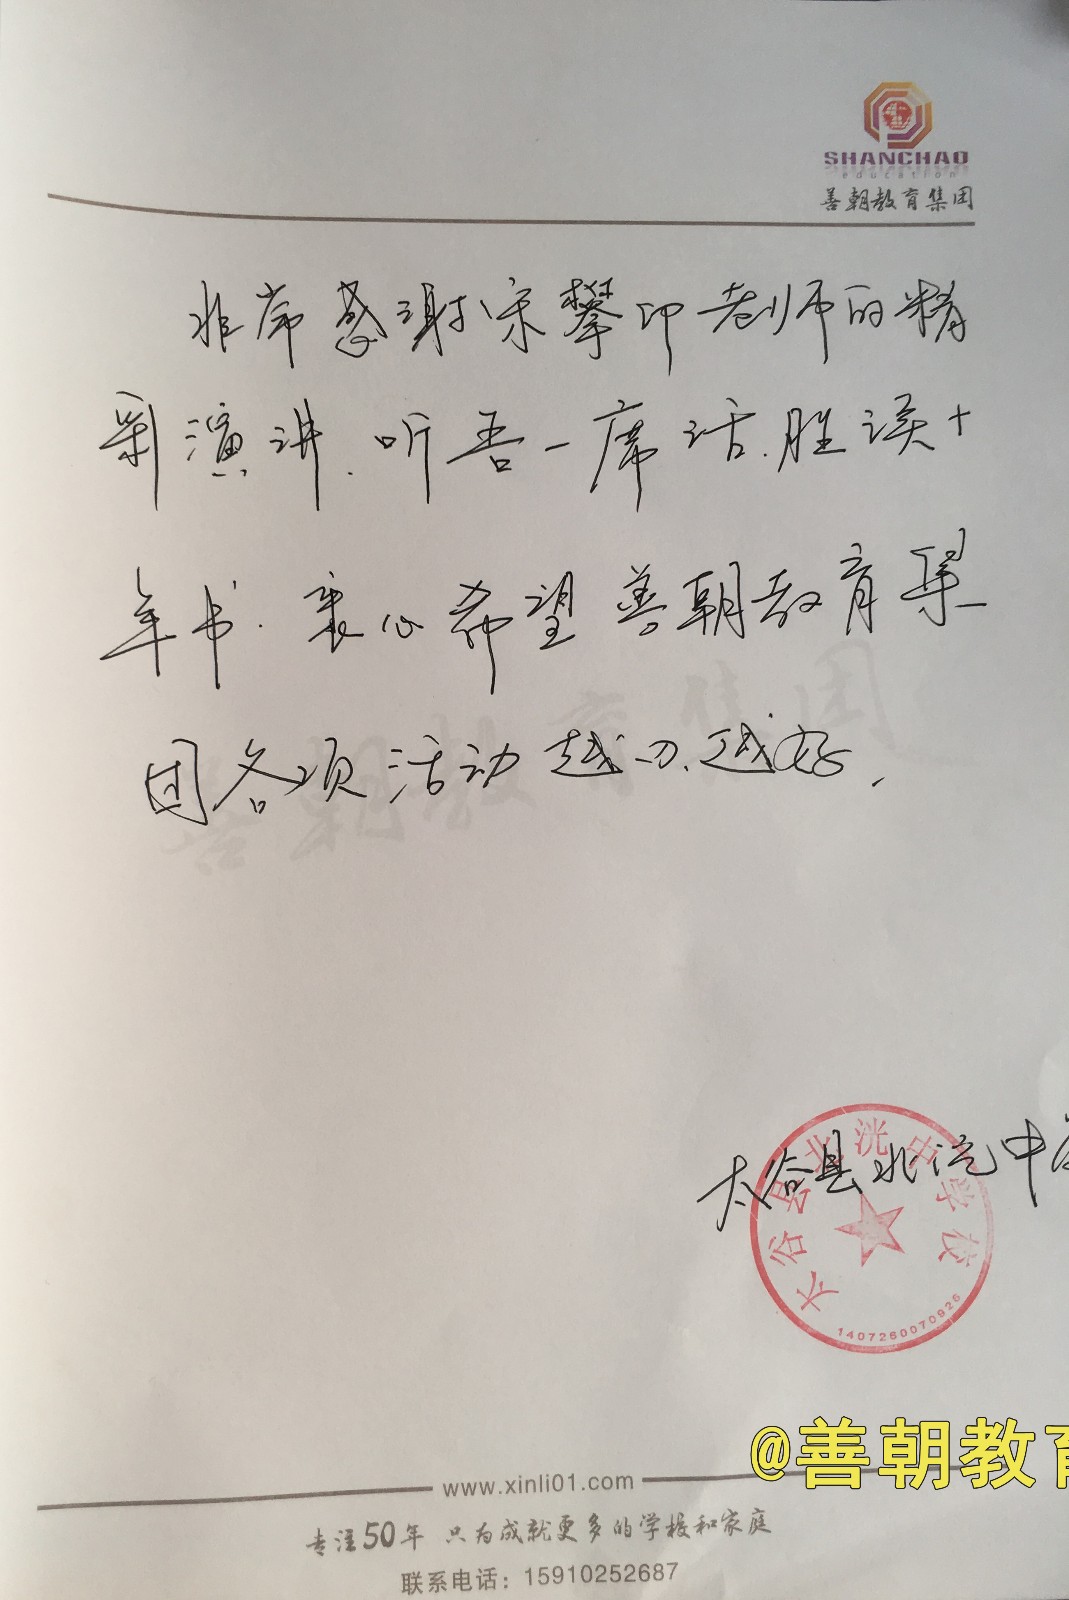 SHANCHAO
education
善朝教育集团
非常感谢宋攀印老师的精
彩演讲.听吾一席话.胜读十
年书.衷心希望善朝教育集
团各项活动越办越好.
善朝教育集团
太谷县北洸中学
太谷县北洸中学校
1407260070926
@善朝教育
www.xinli01.com
专注50年 只为成就更多的学校和家庭
联系电话：15910252687